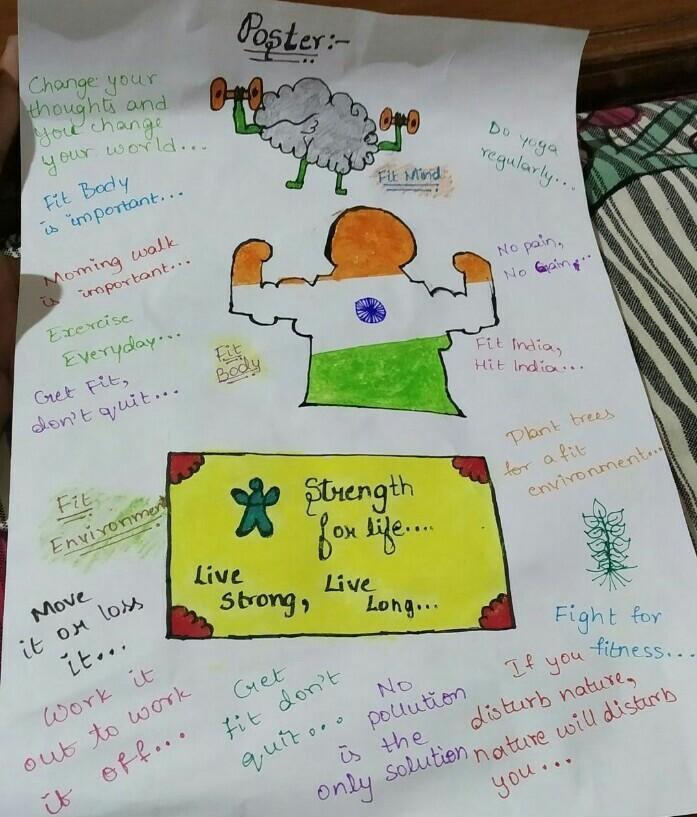 Poster:-
Change your
thoughts and
you change
your world...
Do yoga
regularly...
Fit Mind
Fit Body
is important...
Morning walk
is important...
No pain,
No Gain...
Exercise
Everyday...
Fit
Body
Fit India,
Hit India...
Get Fit,
don't quit...
Plant trees
for a fit
environment...
Fit
Environment
Strength
for life....
Live
Strong,
Live
Long...
Move
it or loss
it...
Fight for
fitness...
Work it
out to work
it off...
Get
fit don't
quit...
No
pollution
is the
only solution
If you
disturb nature,
nature will disturb
you...